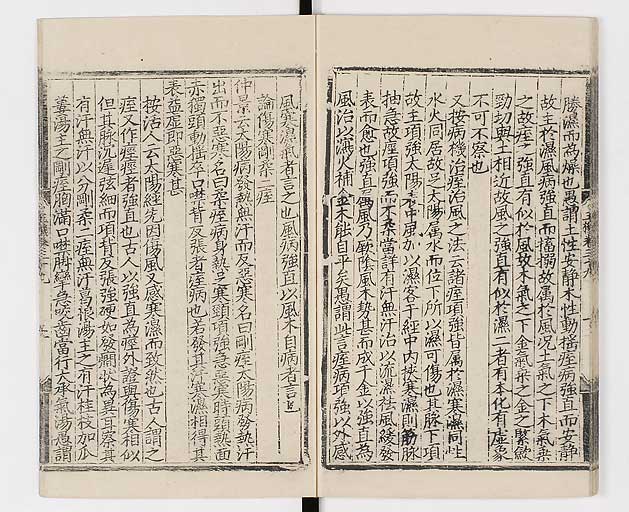 勝濕而為燥也愚謂土性安静木性動搐痓病強直而安静
故主於濕風病強直而搐搦故属於風况土氣之下木氣乗
之故痓之強直有似於風故木氣之下金氣乗之金之緊歛
勁切與土相近故風之強直有似於濕二者有本化有虚象
不可不察也
又按病機治痓治風之法云諸痓項強皆属於濕寒濕同性
水火同居故足太陽属水而位下所以濕可傷也其脉下項
故主項強太陽表中風加以濕客於經中内挾寒濕則筋脉
抽急故痓項強而不柔當詳有汗無汗治以流濕祛風緩發
表而愈也強直癇風乃厥陰風木勢甚而成千金以強直為
風治以瀉火補金木能自平矣愚謂此言痓病項強以外感
風寒濕氣者言之也風病強直以風木自病者言也
論傷寒剛柔二痓
仲景云太陽病發熱無汗而反惡寒名曰剛痓太陽病發熱汗
出而不惡寒名曰柔痓病身熱足寒頸項強急惡寒時頭熱面
赤獨頭動搖卒口噤背反張者痓病也若發其汗寒濕相得其
表益虚即惡寒甚
按活人云太陽經先因傷風又感寒濕而致然也古人謂之
痓又作痙痙者強直也古人以強直為痓外證與傷寒相似
但其脉沉遲弦細而項背反張強硬如發癇状為異耳察其
有汗無汗以分剛柔二痓無汗葛根湯主之有汗桂枝加瓜
蔞湯主之剛痓胸滿口噤脚攣急咬齒當行大承氣湯愚謂